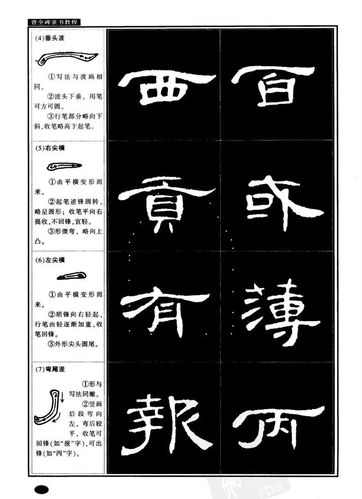 曹全碑隶书教程
(4)垂头波
①写法与波画相
同。
②波头下垂，用笔
可方可圆。
③行笔部分略向下
斜,收笔略高于起笔。
西 百
(5)右尖横
①由平横变形而
来。
②起笔逆锋圆转，
略呈圆形；收笔平向右
提收,不回锋,宜轻。
③形微弯，略向上
凸。
貢 或
(6)左尖横
①由平横变形而
来。
②顺锋向右轻起，
行笔由轻逐渐加重,收
笔回锋。
③外形尖头圆尾。
有 薄
(7)弯尾竖
①形与
写法同撇。
②竖画
后段弯向
左，弯后较
平，收笔可
回锋(如“报”字),可出
锋(如“丙”字)。
報 丙
PDG